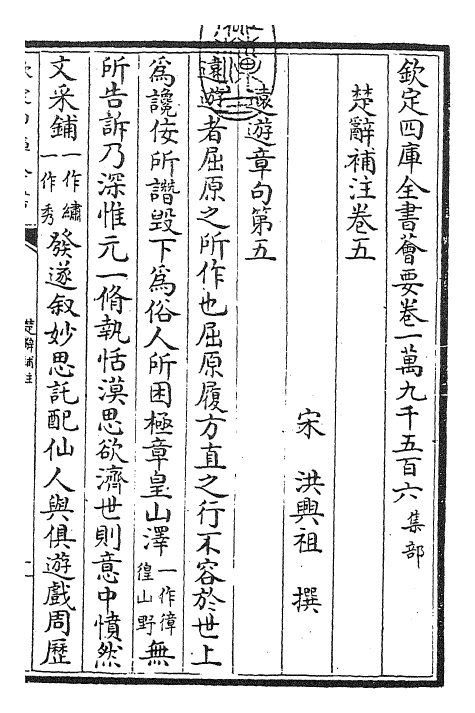 欽定四庫全書薈要卷一萬九千五百六集部
楚辭補注卷五
宋洪興祖撰
遠遊章句第五
遠遊者屈原之所作也屈原履方直之行不容於世上
為讒佞所譖毀下為俗人所困極章皇山澤一作徨山野無
所告訴乃深惟元一脩執恬漠思欲濟世則意中憤然
文采鋪一作繡一作秀發遂叙妙思託配仙人與俱遊戲周歷
楚辭補注